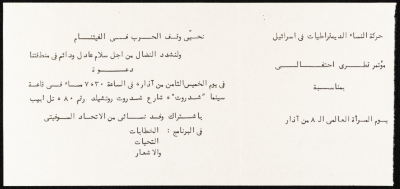 حركة النساء الديمقراطيات في اسرائيل
مؤتمر قطري احتفالي
بمناسبة
يوم المرأة العالمي الـ ٨ من آذار
نحيّي وقف الحرب في الفيتنام
ولنشدد النضال من اجل سلام عادل ودائم في منطقتنا
دعوة
في يوم الخميس الثامن من آذار، في الساعة ٧٫٣٠ مساء في قاعة
سينما "شدروت" شارع شدروت روتشيلد رقم ٨٠ تل ابيب
باشتراك وفد نسائي من الاتحاد السوفيتي
في البرنامج : الخطابات
التحيات
والاشعار